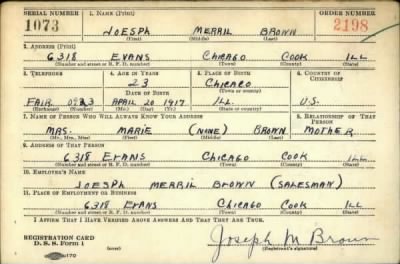 SERIAL NUMBER 1. NAME (Print) ORDER NUMBER
1073 JOESPH MERRIL BROWN 2198
(First) (Middle) (Last)
2. ADDRESS (Print)
6318 EVANS CHICAGO COOK ILL
(Number and street or R. F. D. number) (Town) (County) (State)
3. TELEPHONE 4. AGE IN YEARS 5. PLACE OF BIRTH 6. COUNTRY OF CITIZENSHIP
23 CHICAGO
DATE OF BIRTH (Town or county)
FAIR APRIL 20 1917 ILL. U.S.
(Exchange) (Number) (Mo.) (Day) (Yr.) (State or country)
7. NAME OF PERSON WHO WILL ALWAYS KNOW YOUR ADDRESS 8. RELATIONSHIP OF THAT PERSON
MRS. MARIE (NONE) BROWN MOTHER
(Mr., Mrs., Miss) (First) (Middle) (Last)
9. ADDRESS OF THAT PERSON
6318 EVANS CHICAGO COOK ILL
(Number and street or R. F. D. number) (Town) (County) (State)
10. EMPLOYER'S NAME
JOESPH MERRIL BROWN (SALESMAN)
11. PLACE OF EMPLOYMENT OR BUSINESS
6318 EVANS CHICAGO COOK ILL
(Number and street or R. F. D. number) (Town) (County) (State)
I AFFIRM THAT I HAVE VERIFIED ABOVE ANSWERS AND THAT THEY ARE TRUE.
REGISTRATION CARD
D. S. S. Form 1 (over) Joseph M Brown
(Registrant's signature)